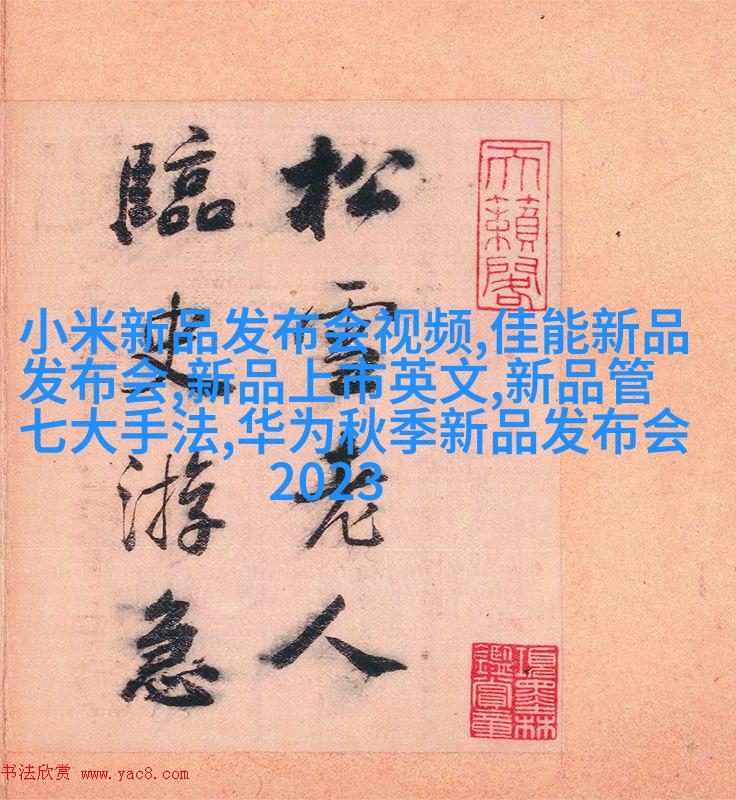 天籟閣
松雪老人
臨史游急
項墨林
鑑賞章
小米新品发布会视频,佳能新品
发布会,新品上市英文,新品管
七大手法,华为秋季新品发布会
2023
书法欣赏 www.yac8.com